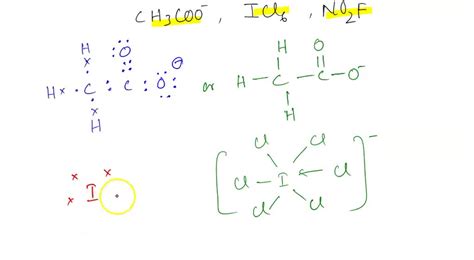 CH3COO⁻, ICl6, NO2F
H O ⊖
H C C O or H C C O⁻
H
H O
H
Cl Cl
Cl I Cl ⁻
Cl Cl
I